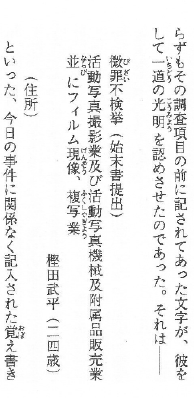 らずもその調査項目の前に記されてあった文字が、彼を
して一道の光明を認めさせたのであった。それは――
微罪不検挙（始末書提出）
活動写真撮影業及び活動写真機械及附属品販売業
並にフィルム現像、複写業
樫田武平（二四歳）
（住所）
といった、今日の事件に関係なく記入された覚え書き